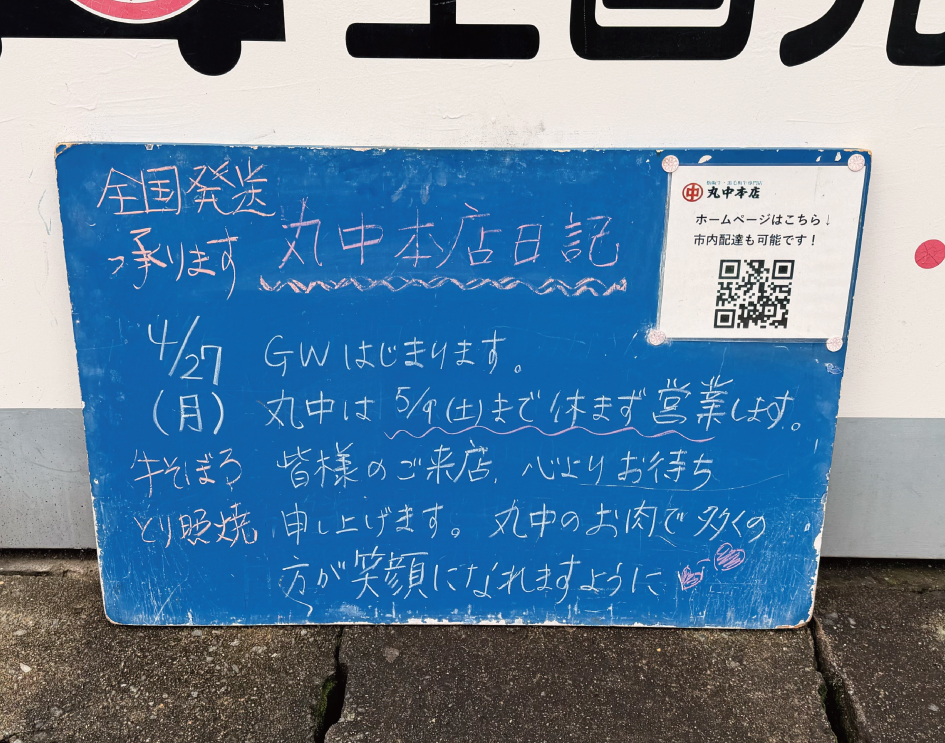 全国発送
承ります
丸中本店日記
4/27
(月)
牛そぼろ
とり照焼
GWはじまります。
丸中は5/9(土)まで休まず営業します。
皆様のご来店、心よりお待ち
申し上げます。丸中のお肉で多くの
方が笑顔になれますように
中
丸中本店
ホームページはこちら↓
市内配達も可能です！